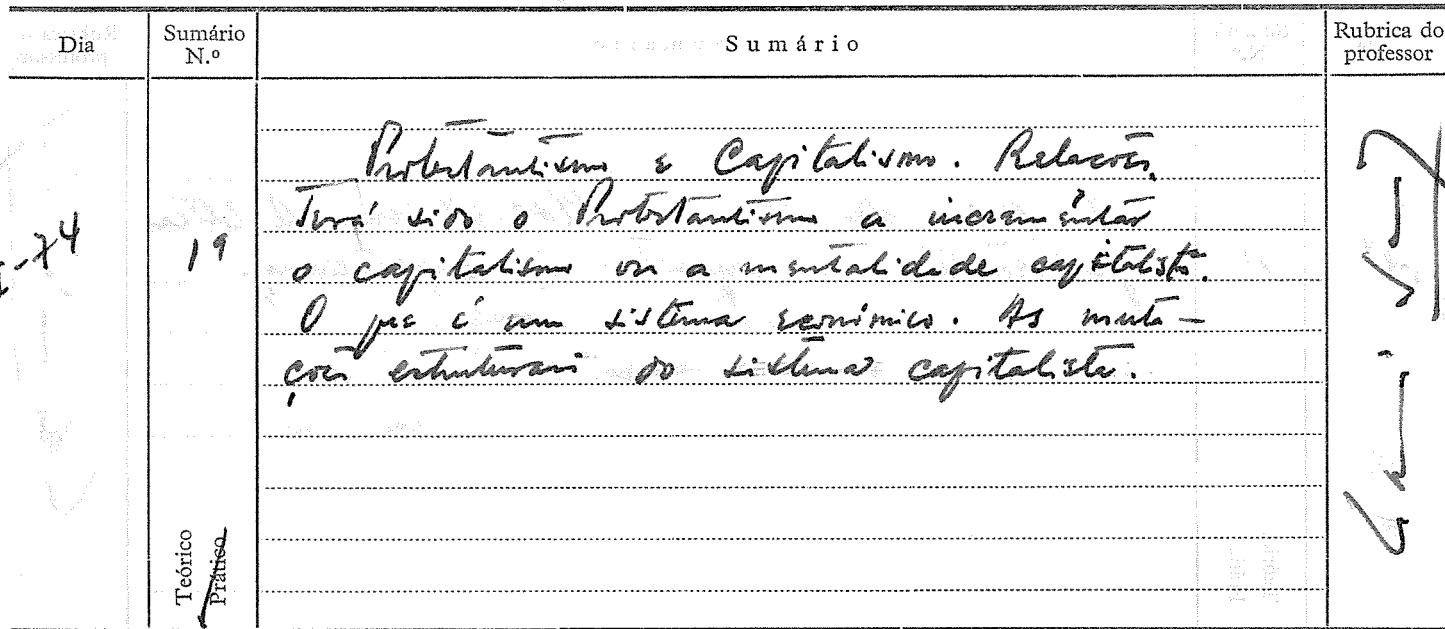 Dia
Sumário N.º
Sumário
Rubrica do professor
Protestantismo e Capitalismo. Relações.
Terá sido o Protestantismo a incrementar
o capitalismo ou a mentalidade capitalista.
O que é um sistema económico. As muta-
ções estruturais do sistema capitalista.
-74
19
Teórico
Prático